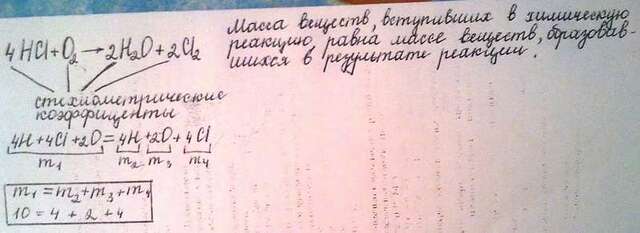 4HCl+O₂→2H₂O+2Cl₂
стехиометрические
коэффиценты
4H+4Cl+2O=4H+2O+4Cl
m₁ m₂ m₃ m₄
m₁=m₂+m₃+m₄
10=4+2+4
Масса веществ, вступивших в химическую
реакцию равна массе веществ, образовав-
шихся в результате реакции.